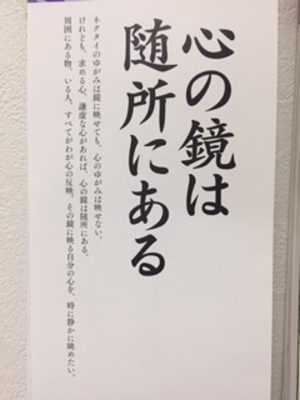 心の鏡は
随所にある
ネクタイのゆがみは鏡に映せても、心のゆがみは映せない。
けれども、求める心、謙虚な心があれば、心の鏡は随所にある。
周囲にある物、いる人、すべてがわが心の反映。その鏡に映る自分の心を、時に静かに眺めたい。